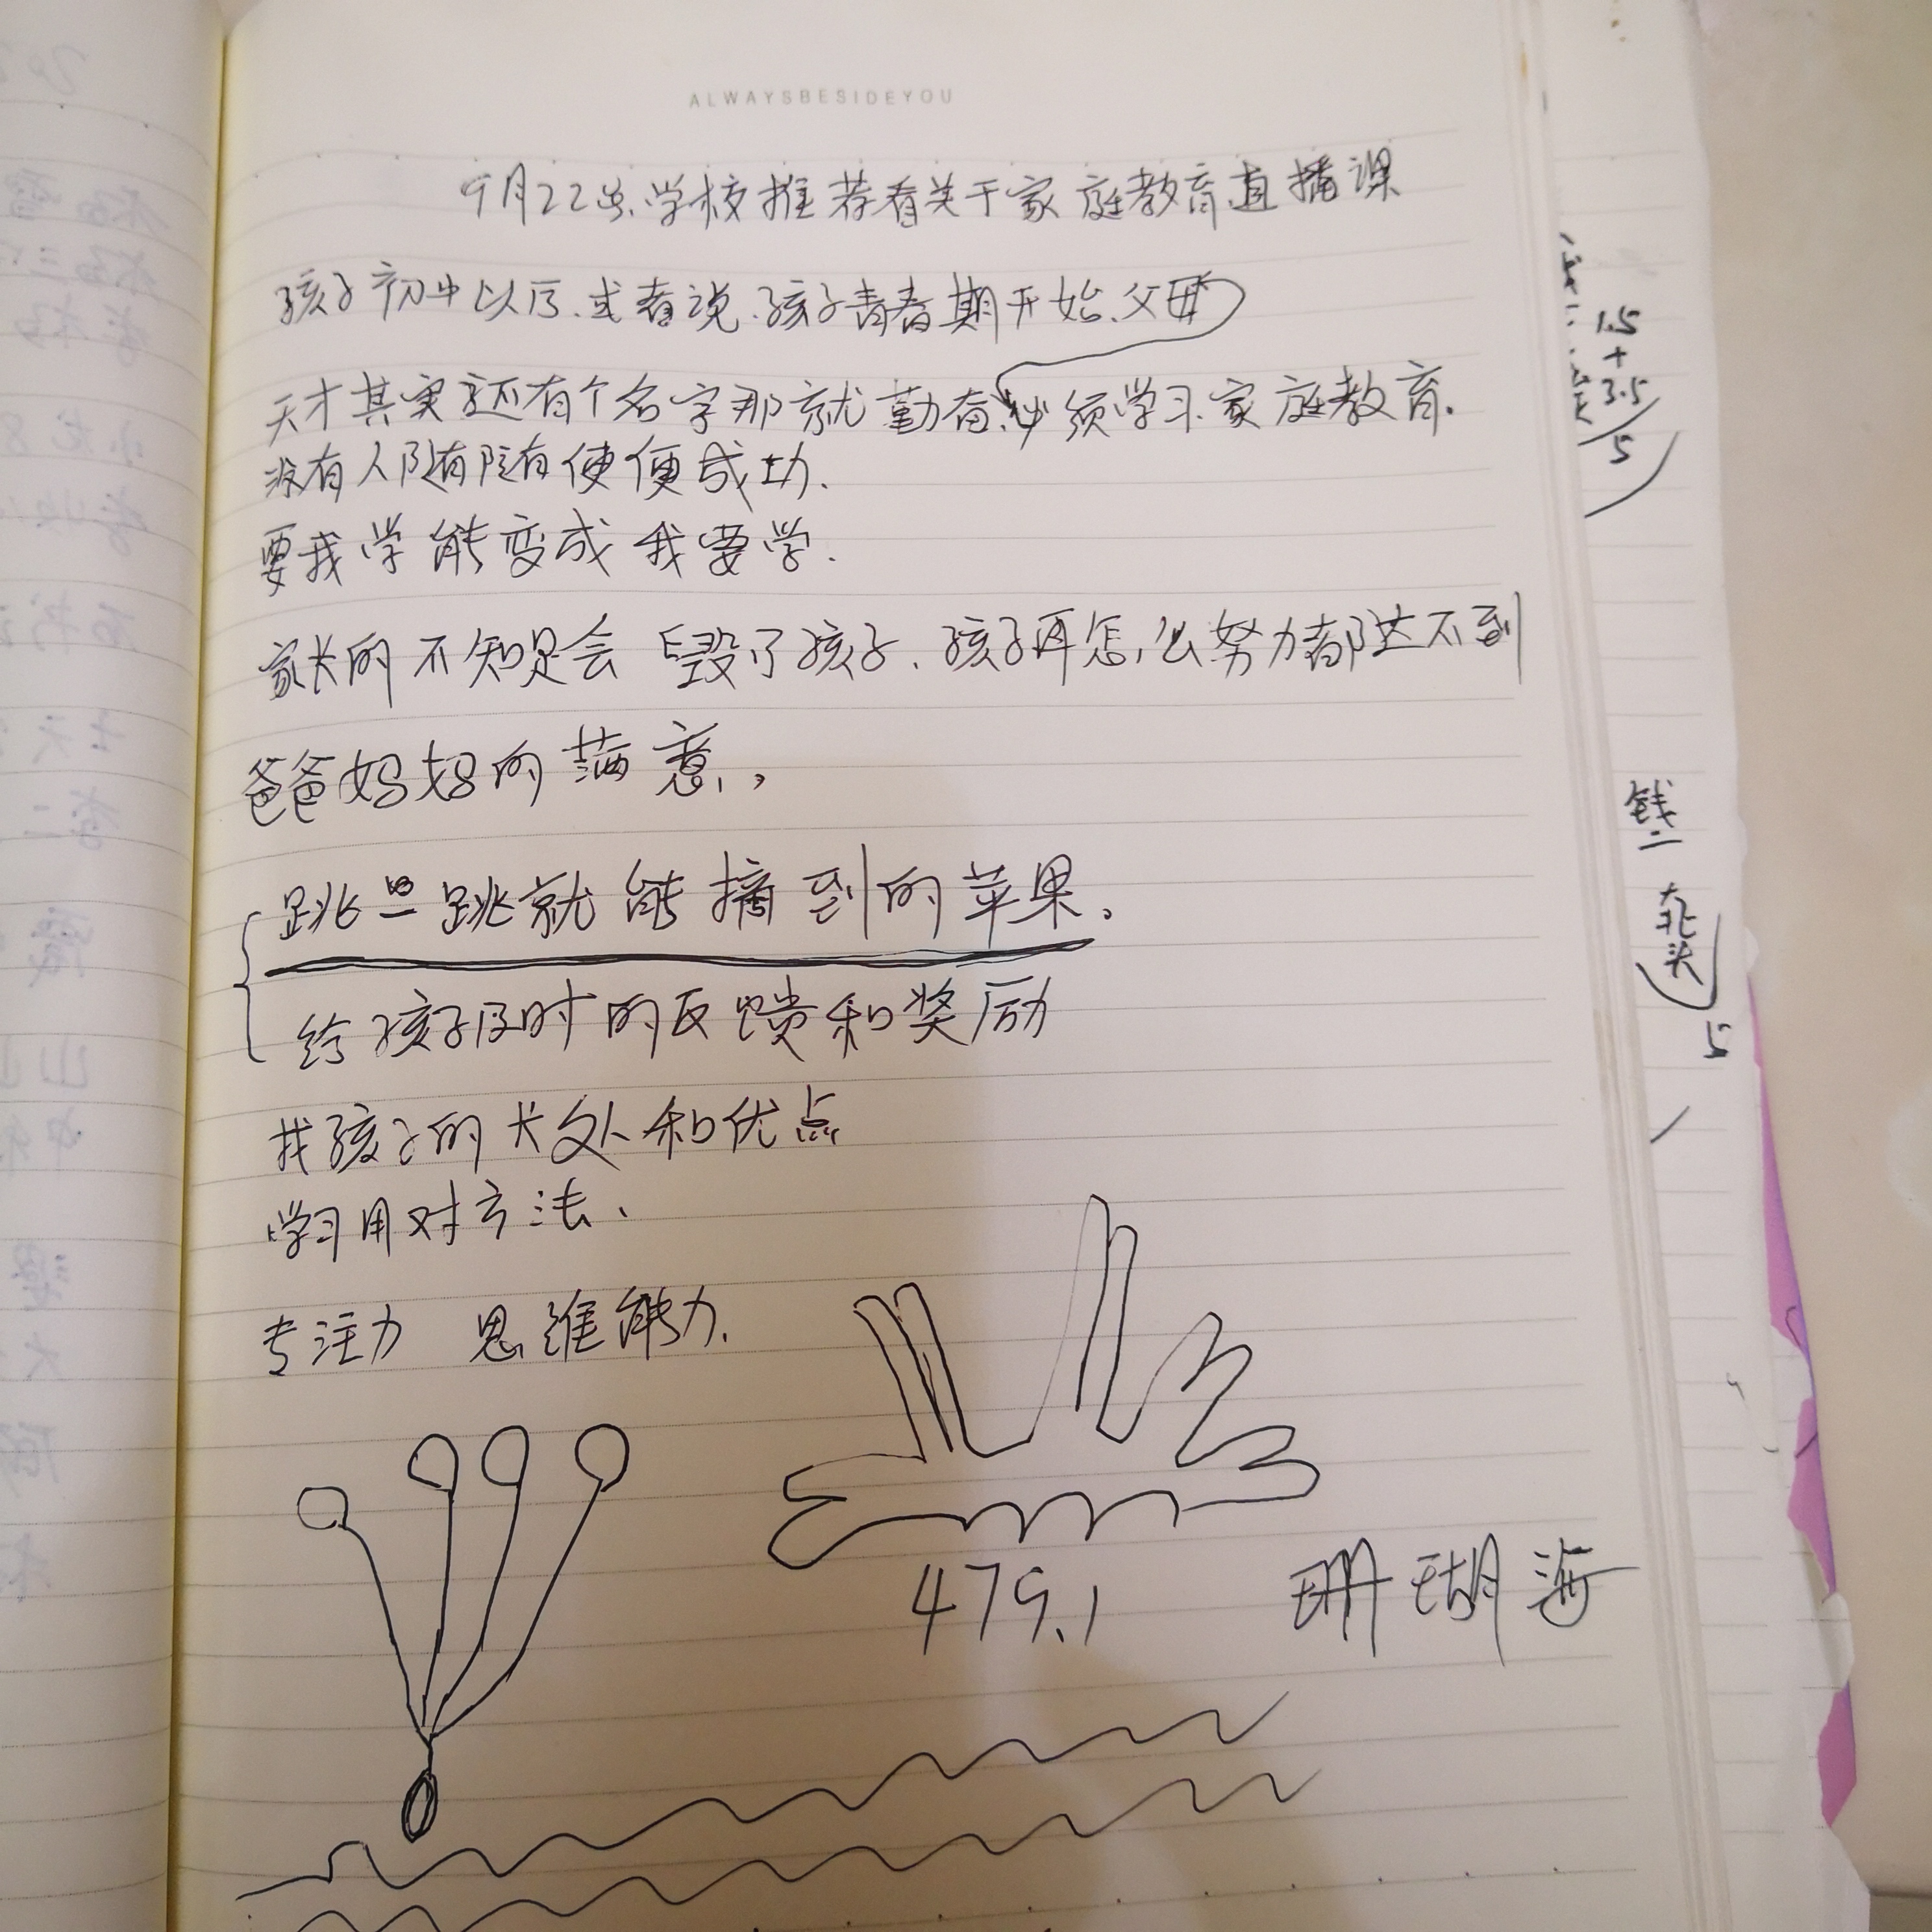 ALWAYSBESIDEYOU
9月22号学校推荐看关于家庭教育直播课
孩子初中以后.或者说.孩子青春期开始.父母
天才其实还有个名字那就勤奋.必须学习家庭教育.
没有人随随便便成功.
要我学能变成我要学.
家长的不知足会毁了孩子.孩子再怎么努力都达不到
爸爸妈妈的满意,
跳一跳就能摘到的苹果.
给孩子及时的反馈和奖励
找孩子的长处和优点
学习用对方法.
专注力 思维能力.
479.1 珊瑚海
1.5
+
3.5
5
钱二
5